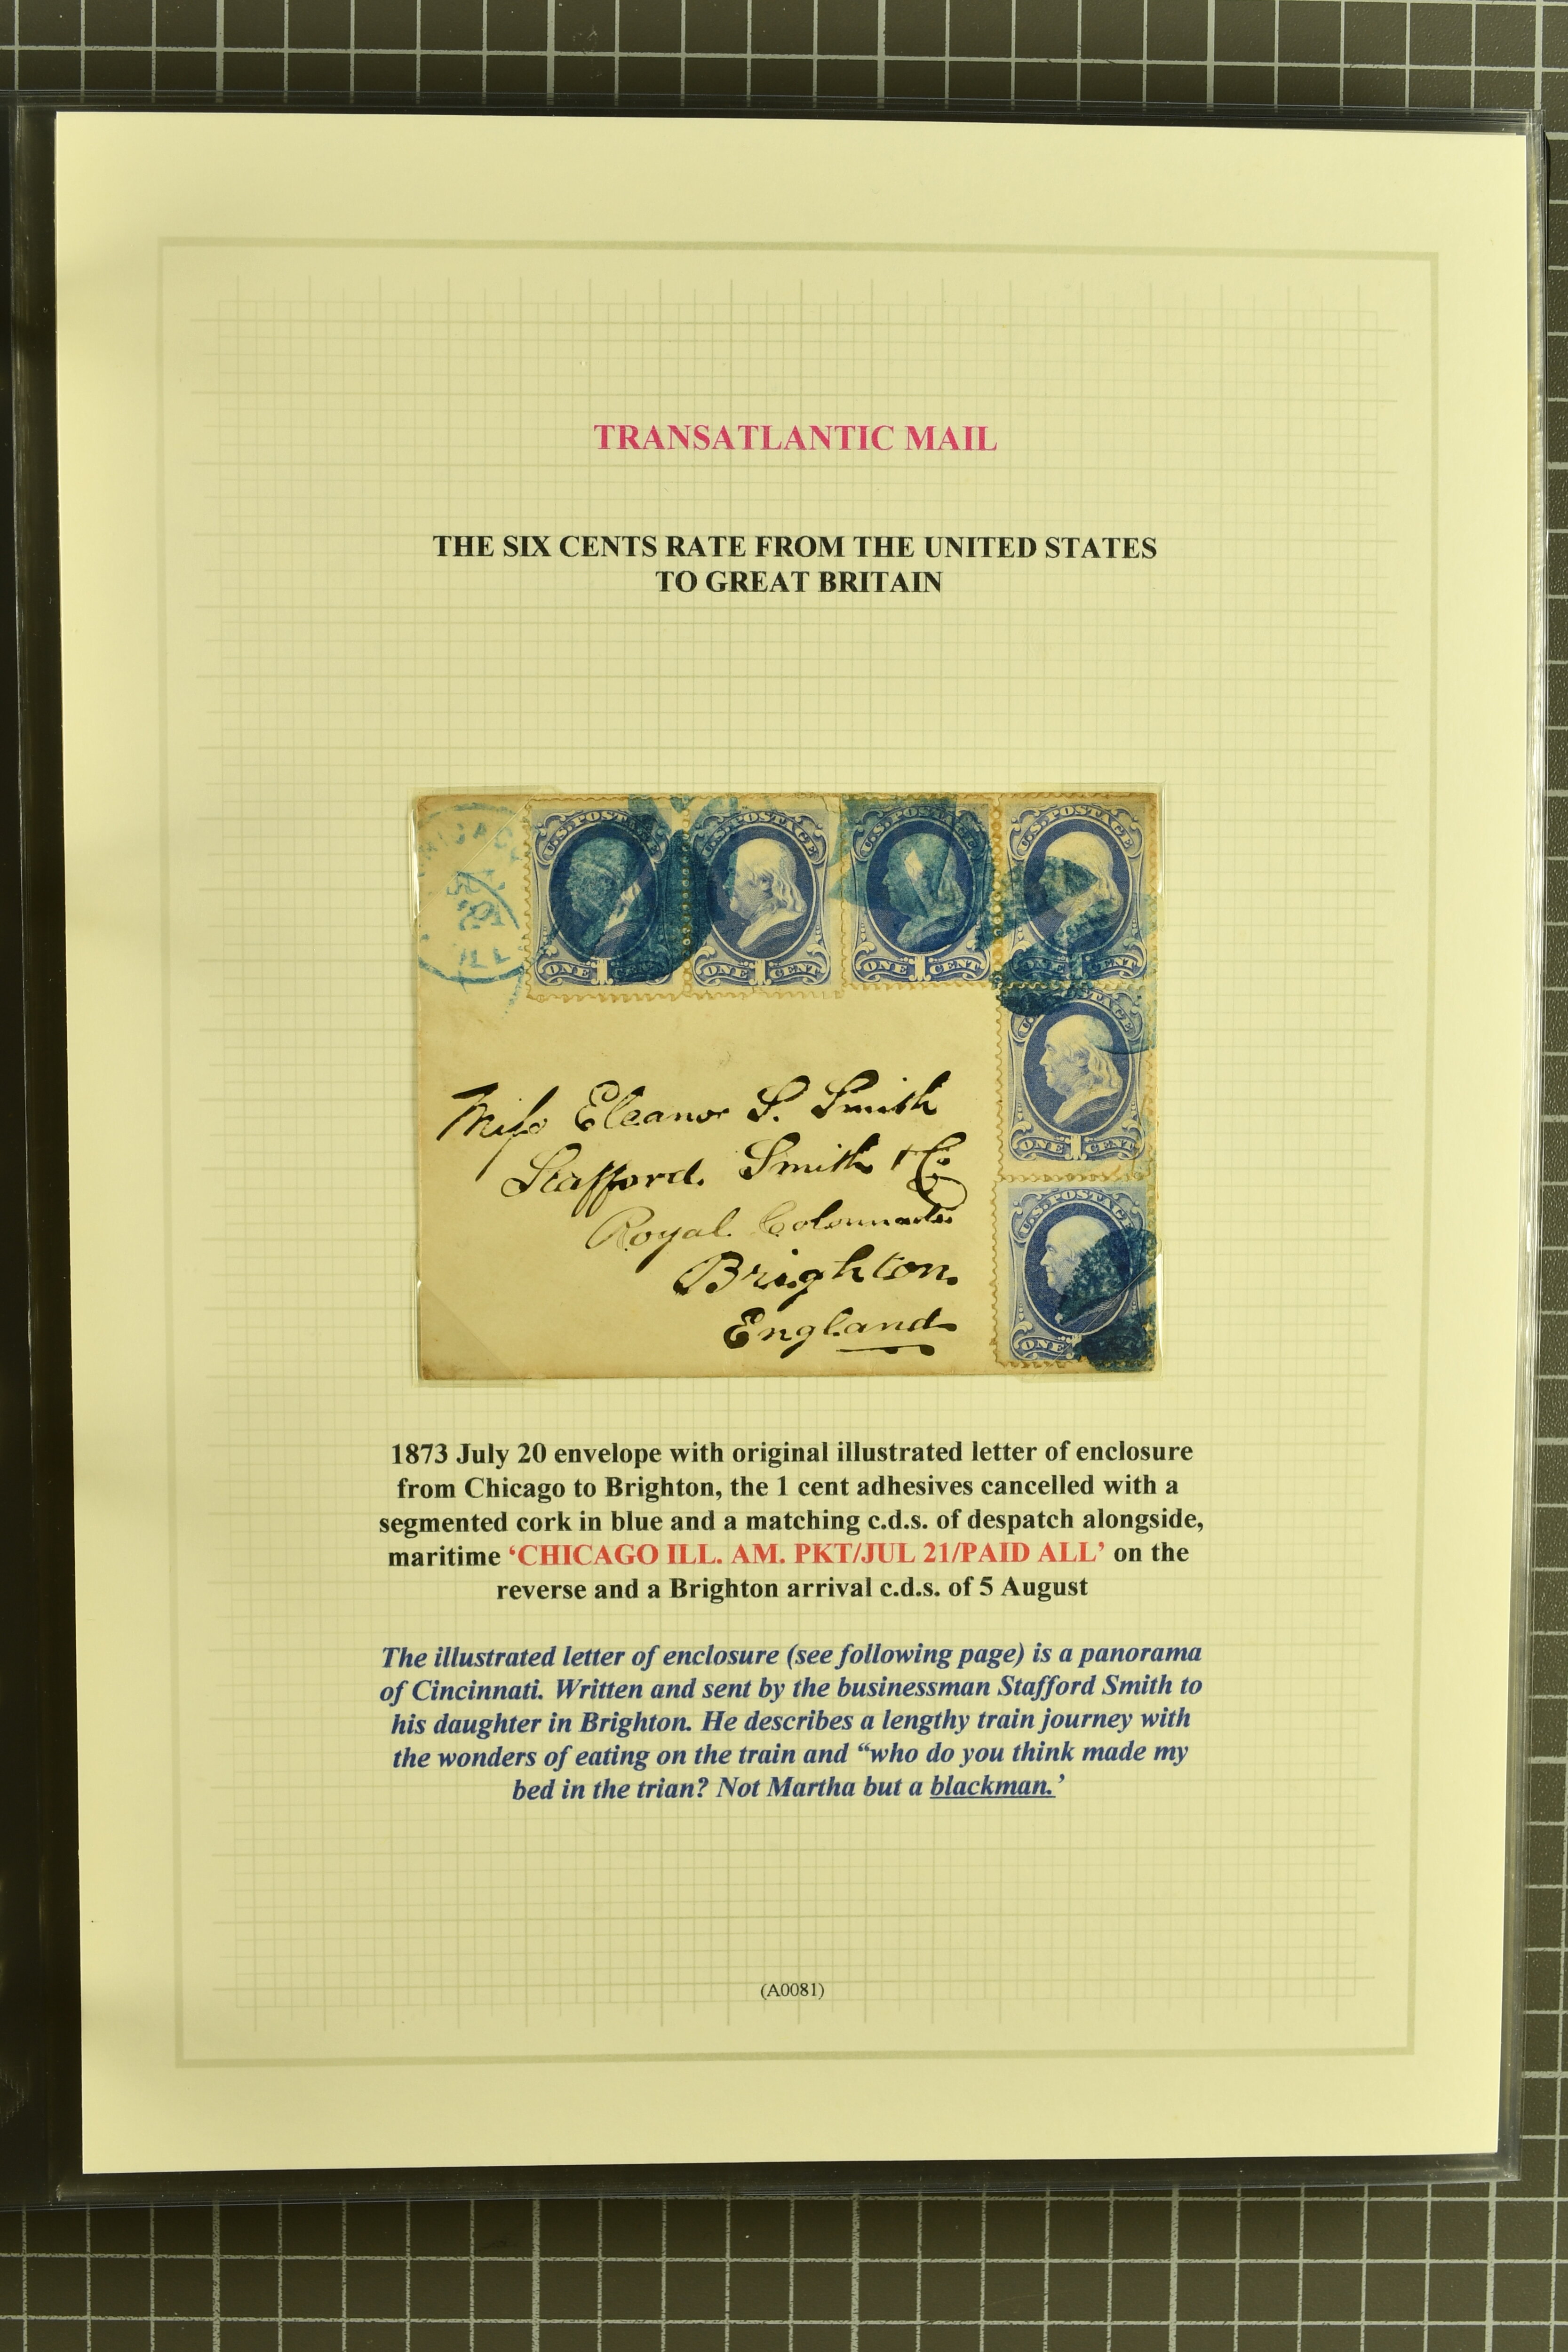 TRANSATLANTIC MAIL
THE SIX CENTS RATE FROM THE UNITED STATES
TO GREAT BRITAIN
CHICAGO
JUL
20
ILL
U.S. POSTAGE
ONE 1 CENT
U.S. POSTAGE
ONE 1 CENT
U.S. POSTAGE
ONE 1 CENT
U.S. POSTAGE
ONE 1 CENT
U.S. POSTAGE
ONE 1 CENT
U.S. POSTAGE
ONE
Miss Eleanor S. Smith
Stafford. Smith & Co
Royal Colonnade
Brighton.
England
1873 July 20 envelope with original illustrated letter of enclosure
from Chicago to Brighton, the 1 cent adhesives cancelled with a
segmented cork in blue and a matching c.d.s. of despatch alongside,
maritime ‘CHICAGO ILL. AM. PKT/JUL 21/PAID ALL’ on the
reverse and a Brighton arrival c.d.s. of 5 August
The illustrated letter of enclosure (see following page) is a panorama
of Cincinnati. Written and sent by the businessman Stafford Smith to
his daughter in Brighton. He describes a lengthy train journey with
the wonders of eating on the train and “who do you think made my
bed in the trian? Not Martha but a blackman.’
(A0081)